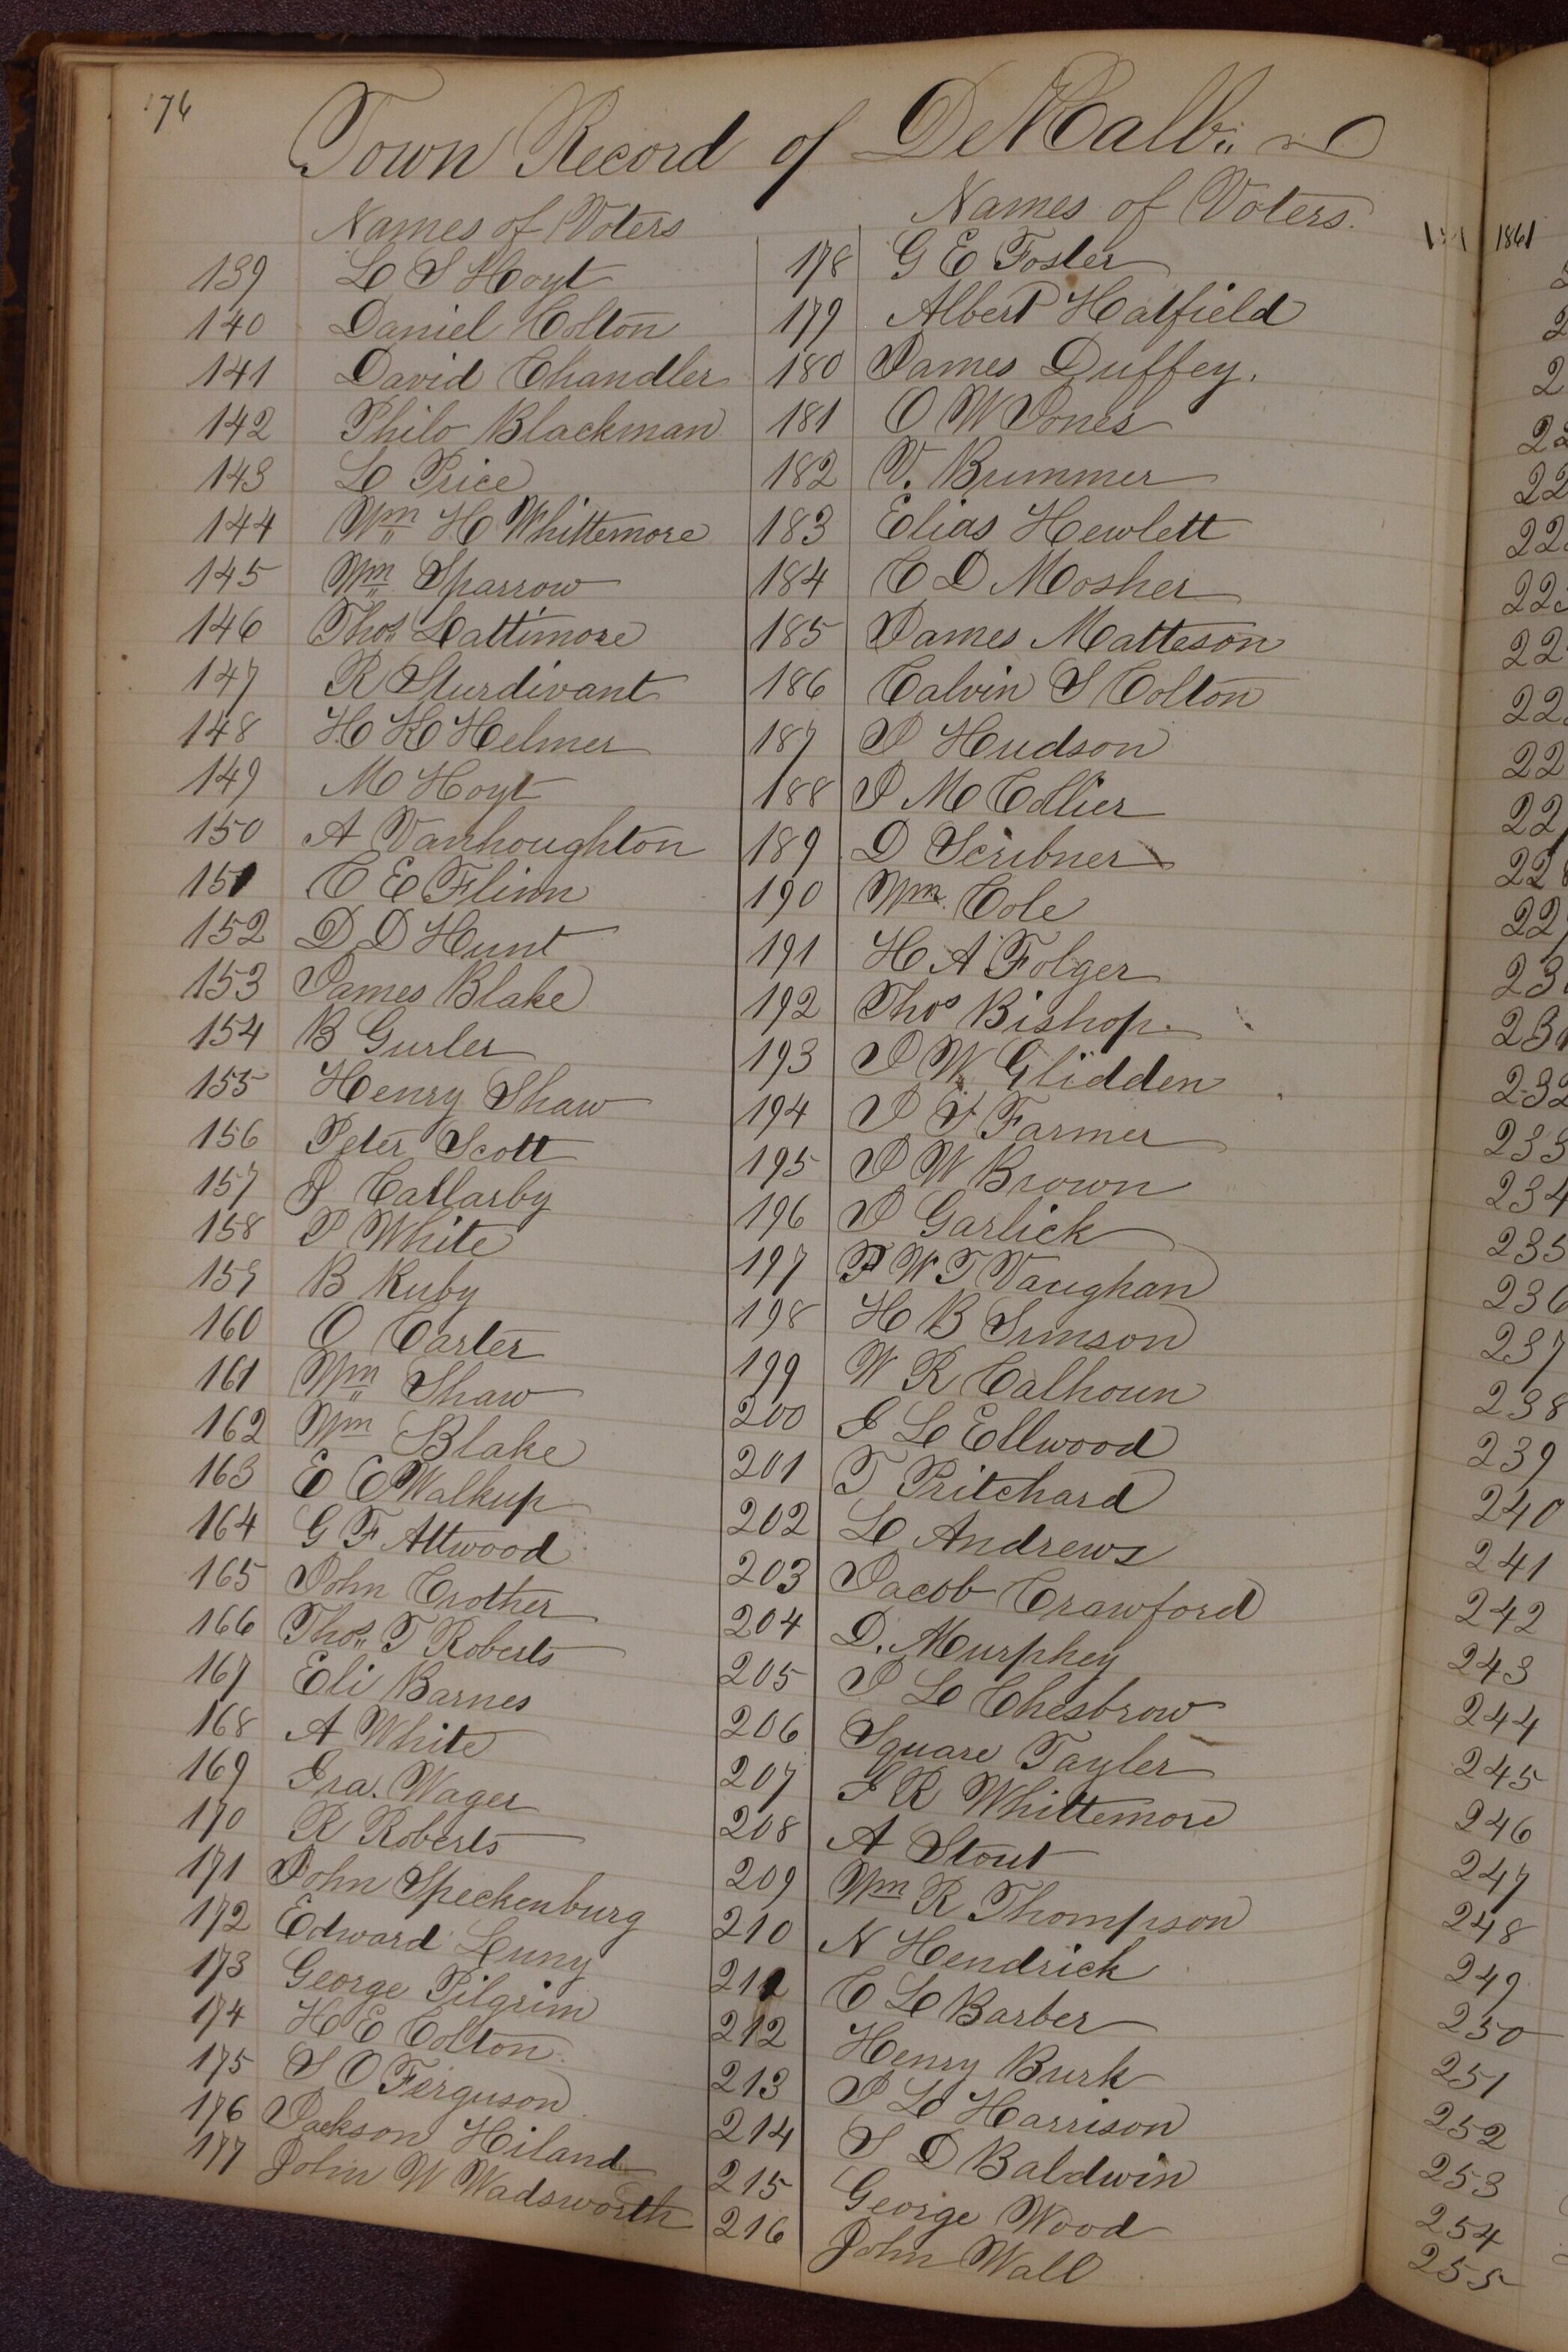 176
Town Record of DeKalb
Names of Voters
139 L S Hoyt
140 Daniel Colton
141 David Chandler
142 Philo Blackman
143 L Price
144 Wm H Whittemore
145 Wm Sparrow
146 Thos Lattimore
147 R Sturdivant
148 H H Helmer
149 M Hoyt
150 A Vanhoughton
151 C E Flinn
152 D D Hunt
153 James Blake
154 B Gurler
155 Henry Shaw
156 Peter Scott
157 J Callarby
158 P White
159 B Ruby
160 O Carter
161 Wm Shaw
162 Wm Blake
163 E C Walkup
164 G F Attwood
165 John Crother
166 Thos T Roberts
167 Eli Barnes
168 A White
169 Ira. Wager
170 R Roberts
171 John Speckenburg
172 Edward Luny
173 George Pilgrim
174 H E Colton
175 S O Ferguson
176 Jackson Hiland
177 John W Wadsworth
Names of Voters.
178 G E Foster
179 Albert Hatfield
180 James Duffey.
181 O W Jones
182 V. Brummer
183 Elias Hewlett
184 C D Mosher
185 James Matteson
186 Calvin S Colton
187 J Hudson
188 J M Collier
189 D Scribner
190 Wm Cole
191 H A Folger
192 Thos Bishop.
193 J W Glidden
194 J F Farmer
195 J W Brown
196 J Garlick
197 F W T Vaughan
198 H B Simson
199 W R Calhoun
200 I L Ellwood
201 T Pritchard
202 L Andrews
203 Jacob Crawford
204 D. Murphey
205 J L Chesbrow
206 Square Tayler
207 I R Whittemore
208 A Stout
209 Wm R Thompson
210 N Hendrick
211 C L Barber
212 Henry Burk
213 J L Harrison
214 S D Baldwin
215 George Wood
216 John Wall
1861
232
233
234
235
236
237
238
239
240
241
242
243
244
245
246
247
248
249
250
251
252
253
254
255